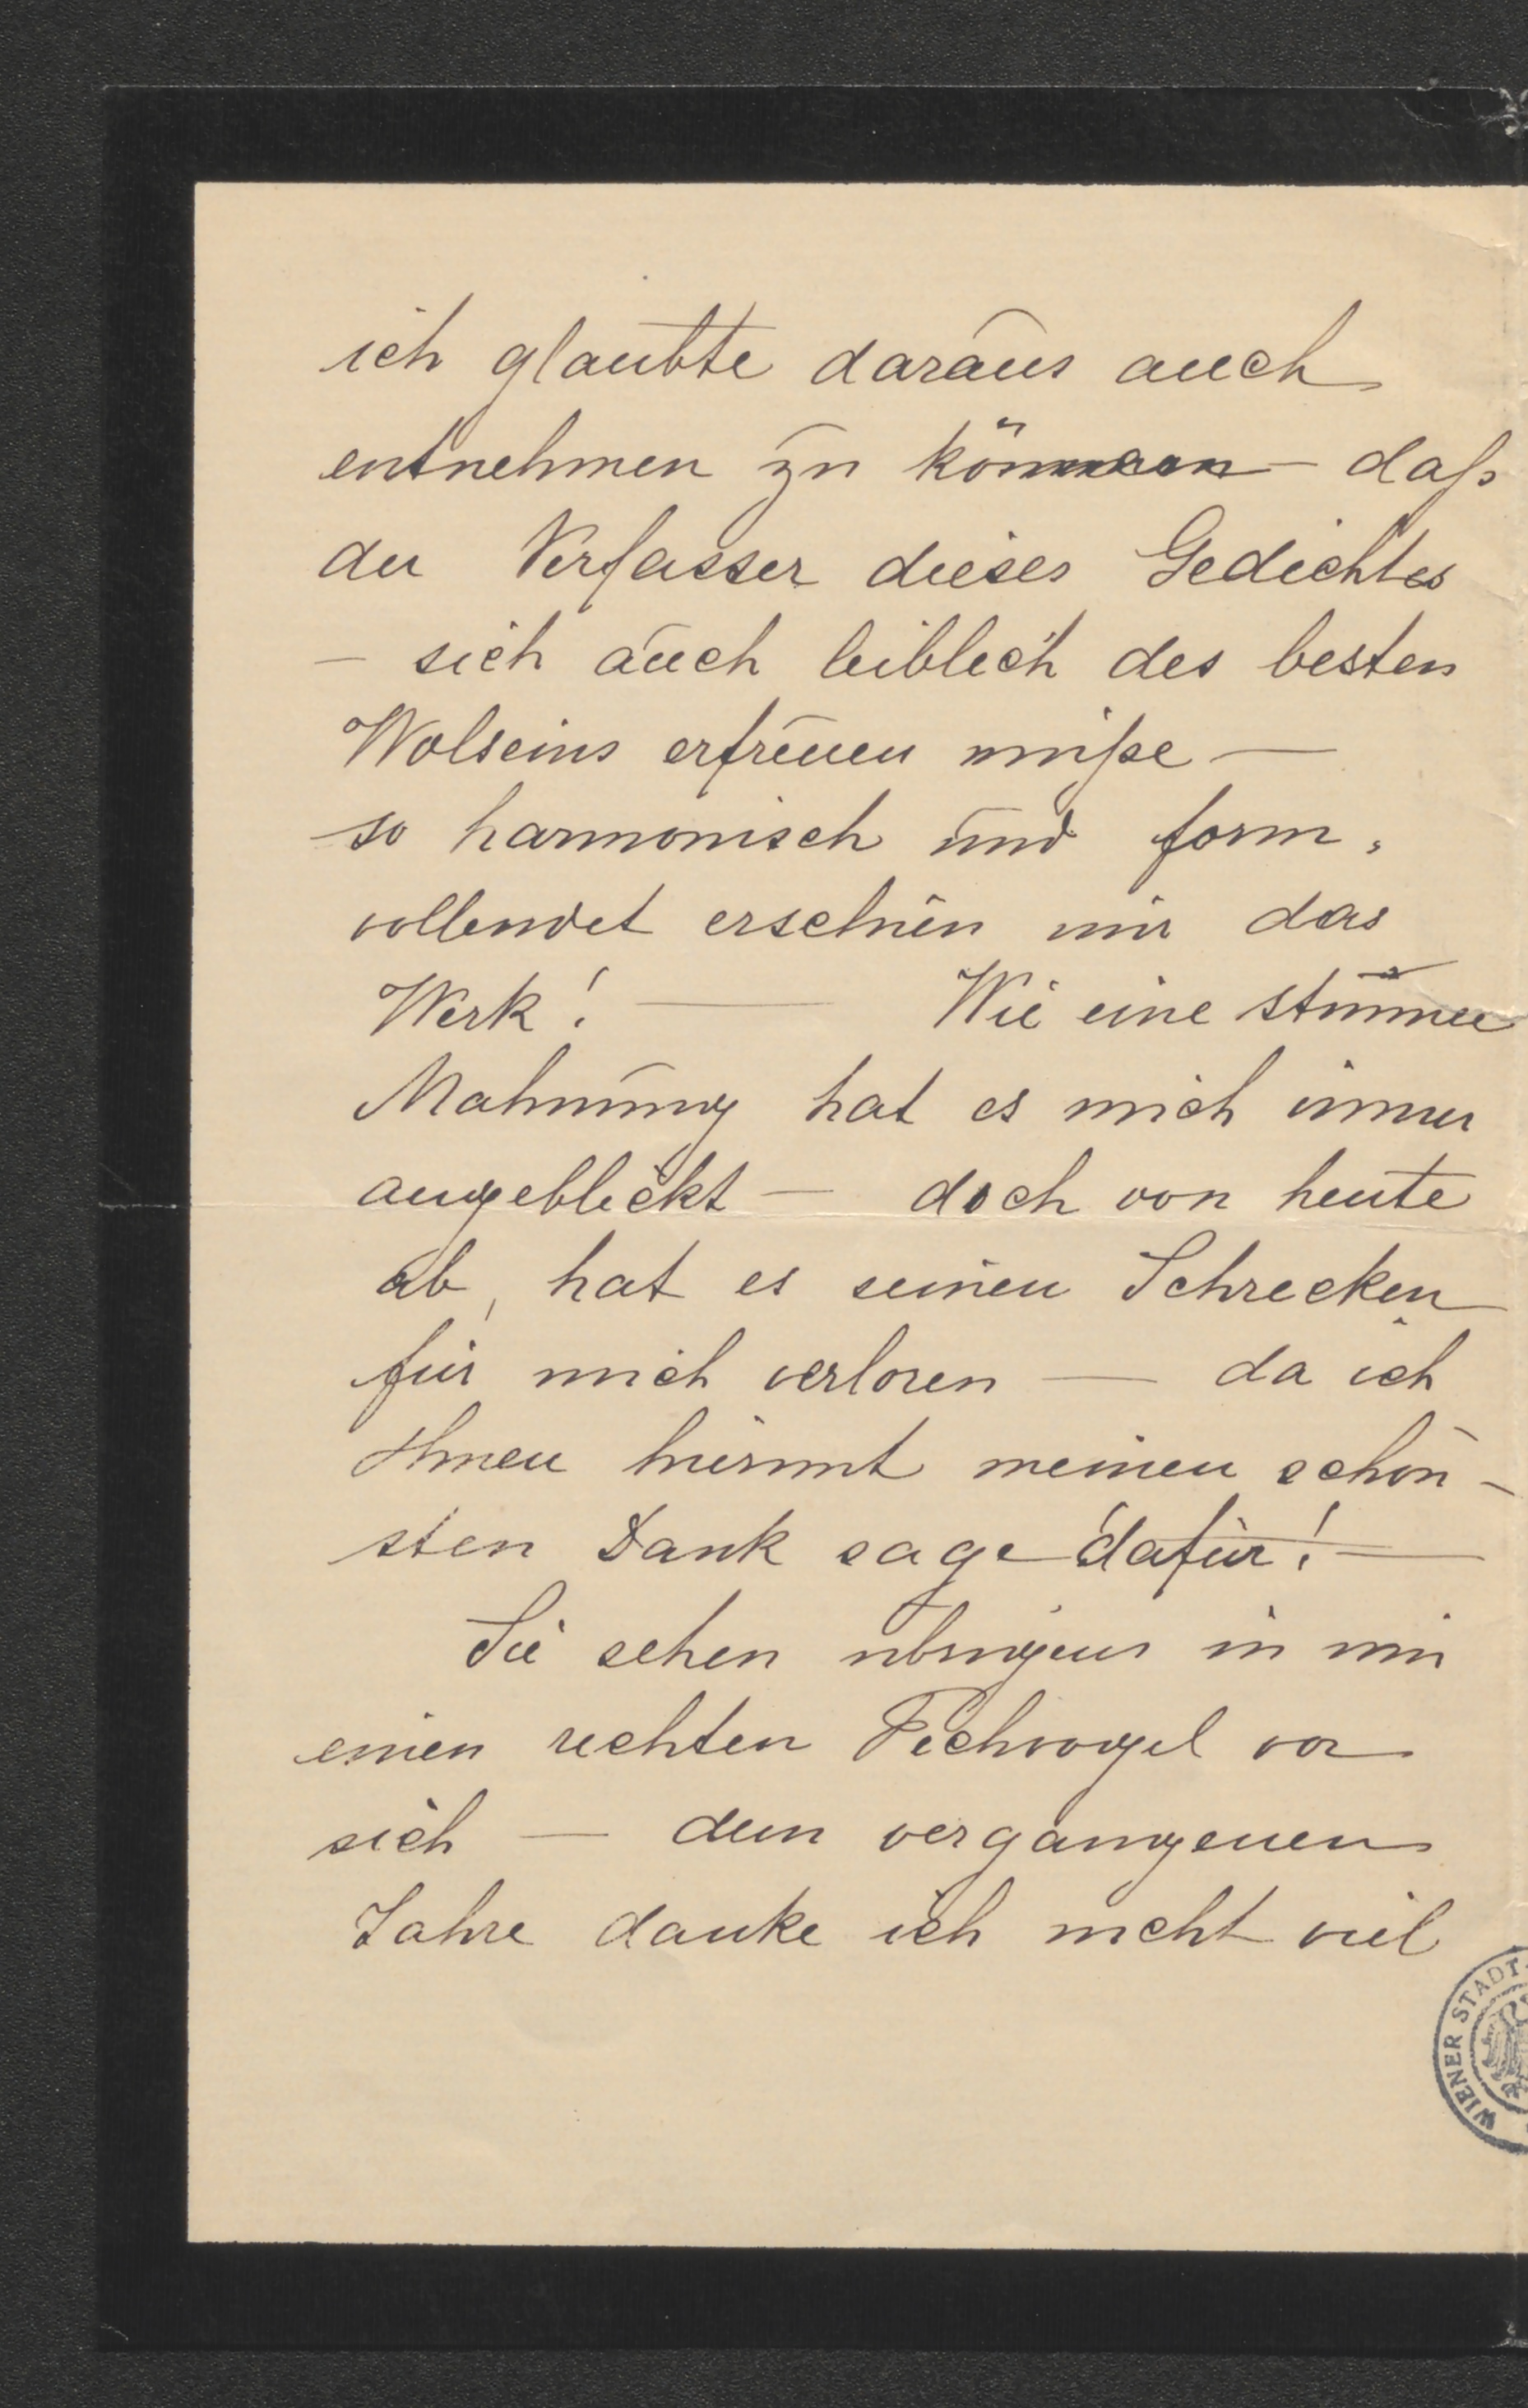 ich glaubte daraus auch
entnehmen zu können – daß
der Verfasser dieses Gedichtes
– sich auch leiblich des besten
Wolseins erfreuen müße –
so harmonisch und form,
vollendet erschien mir das
Werk! – Wie eine stumme
Mahnung hat es mich immer
angeblickt – doch von heute
ab, hat es seinen Schrecken
für mich verloren – da ich
Ihnen hiermit meinen schön-
sten Dank sage dafür! –
Sie sehen übrigens in mir
einen rechten Pechvogel vor
sich – dem vergangenen
Jahre danke ich nicht viel
WIENER STADT-